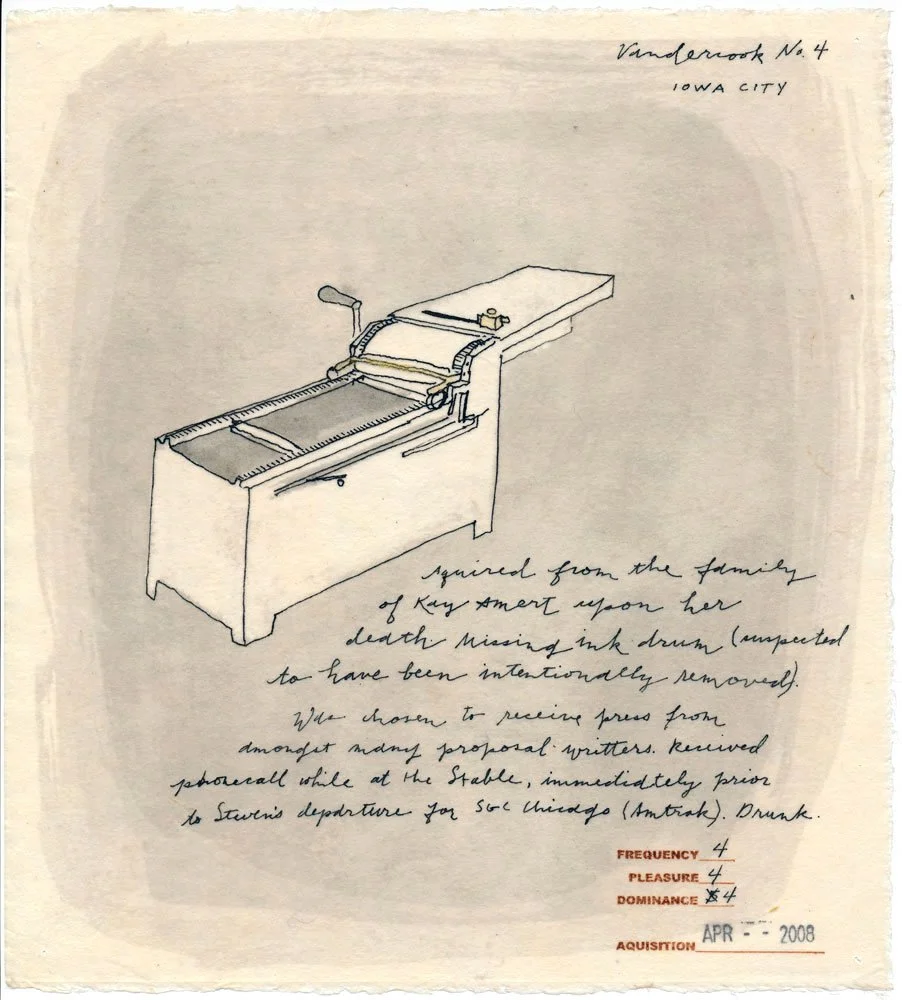 Vandercook No. 4
IOWA CITY
Aquired from the family
of Kay Amert upon her
death. Missing ink drum (suspected
to have been intentionally removed).
Was chosen to receive press from
amongst many proposal writters. Received
phonecall while at the Stable, immediately prior
to Steven's departure for SGC Chicago (Amtrak). Drunk.
FREQUENCY 4
PLEASURE 4
DOMINANCE 4
AQUISITION APR -- 2008